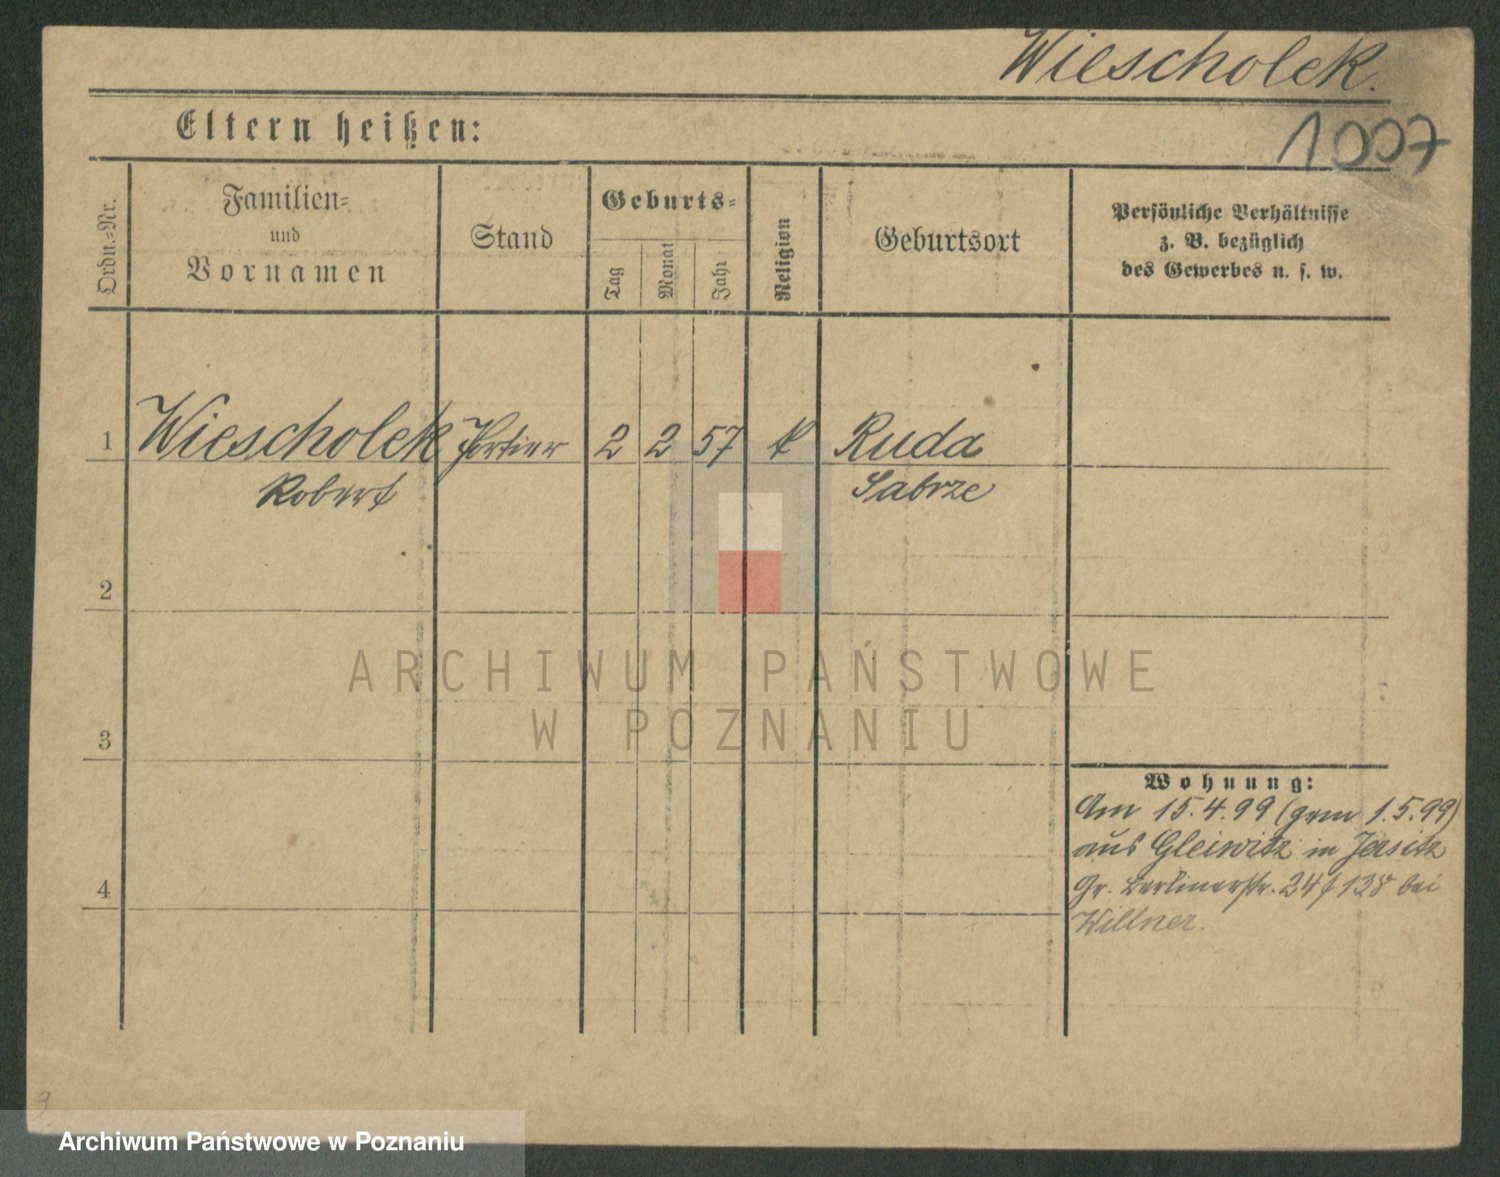 Wiescholek.
1007
Eltern heißen:
Ordn.=Nr.
Familien=
und
Vornamen
Stand
Geburts=
Tag
Monat
Jahr
Religion
Geburtsort
Persönliche Verhältnisse
z. B. bezüglich
des Gewerbes u. s. w.
1 Wiescholek Portier 2 2 57 k Ruda
Robert Sabrze
2
3
4
Wohnung:
Am 15.4.99 (gem 1.5.99)
aus Gleiwitz in Jersitz
Gr. Berlinerstr. 24 / 138 bei
Willner.
ARCHIWUM PAŃSTWOWE
W POZNANIU
9
Archiwum Państwowe w Poznaniu